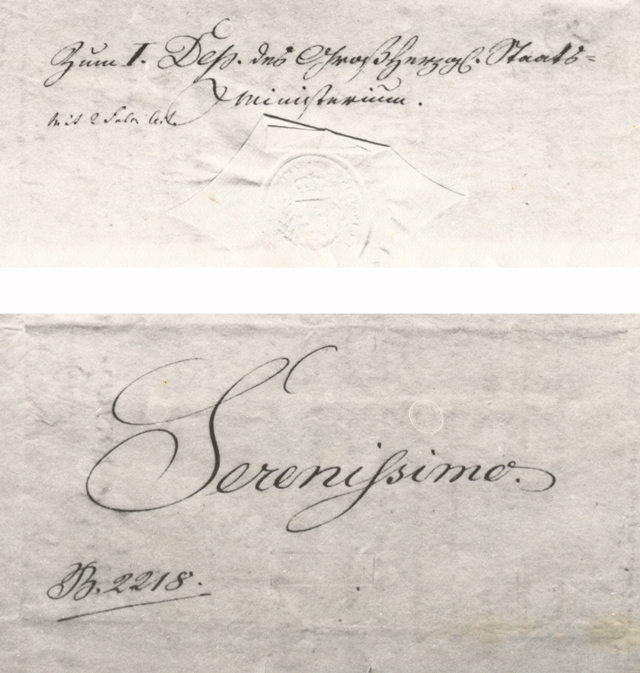 Zum I. Dep. des Großherzogl. Staats=
Ministerium.
mit 2
Serenissimo.
B. 2218.